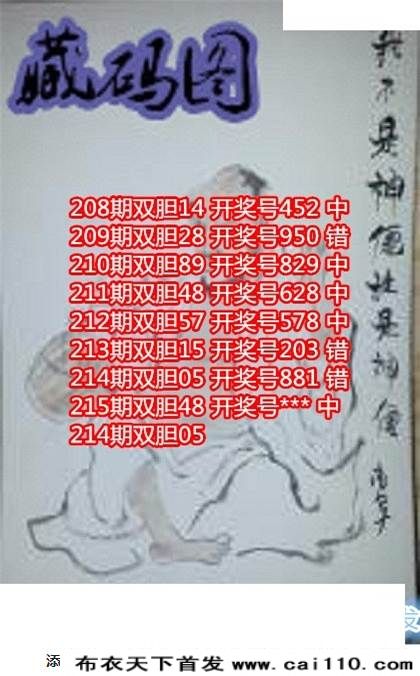 藏码图
我不是神仙北是神仙
208期双胆14 开奖号452 中
209期双胆28 开奖号950 错
210期双胆89 开奖号829 中
211期双胆48 开奖号628 中
212期双胆57 开奖号578 中
213期双胆15 开奖号203 错
214期双胆05 开奖号881 错
215期双胆48 开奖号*** 中
214期双胆05
添 布衣天下首发 www.cai110.com